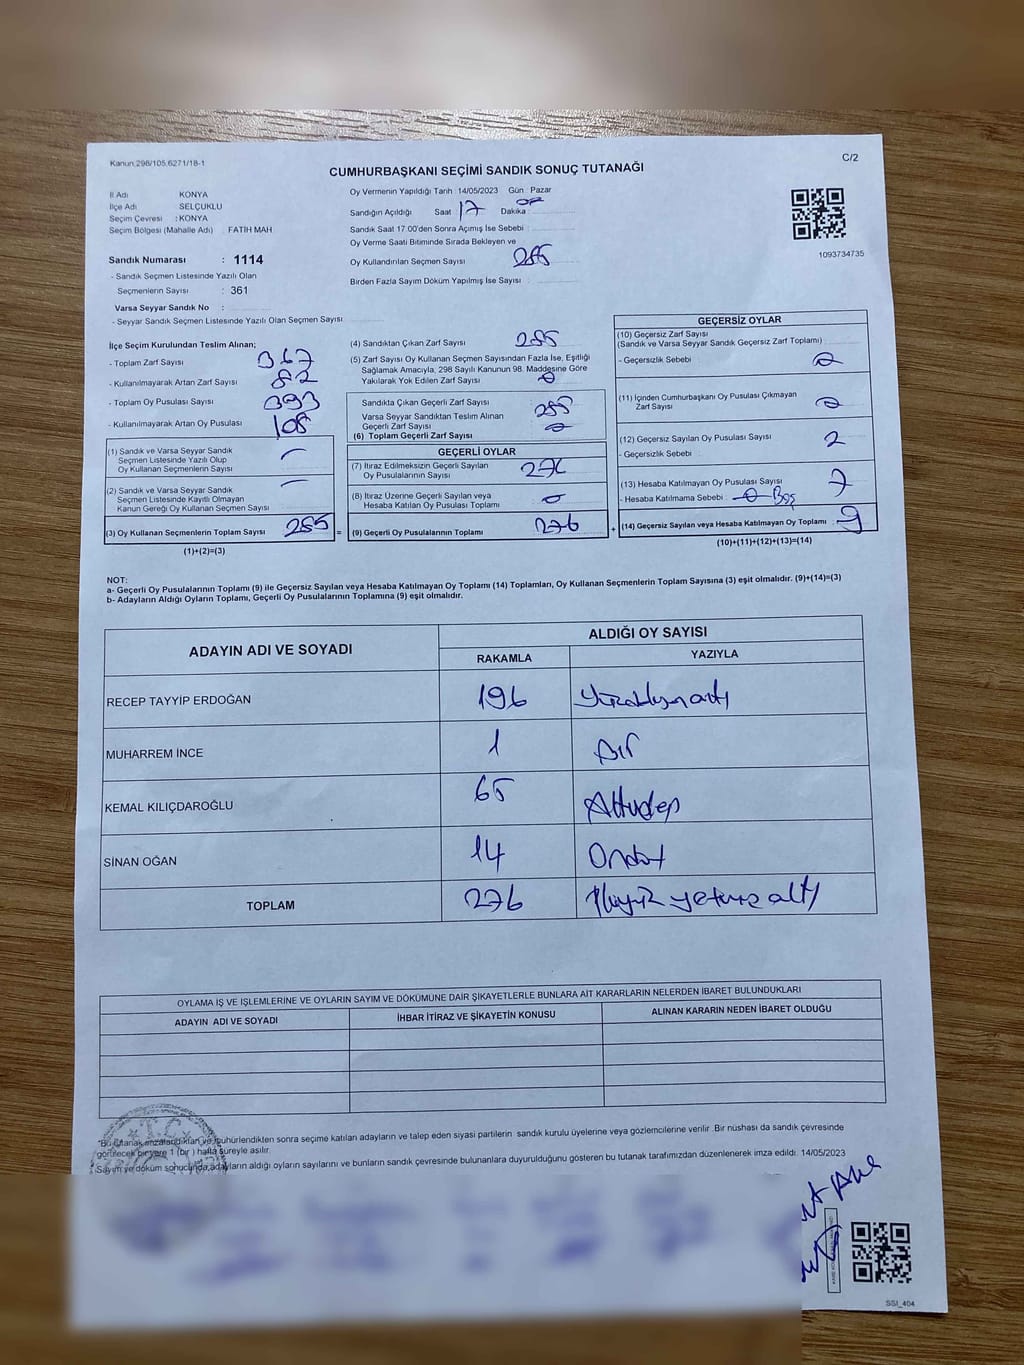 Kanun.298/105.6271/18-1
C/2
CUMHURBAŞKANI SEÇİMİ SANDIK SONUÇ TUTANAĞI
İl Adı KONYA
İlçe Adı SELÇUKLU
Seçim Çevresi : KONYA
Seçim Bölgesi (Mahalle Adı) FATİH MAH
Sandık Numarası : 1114
- Sandık Seçmen Listesinde Yazılı Olan
Seçmenlerin Sayısı : 361
Varsa Seyyar Sandık No :
- Seyyar Sandık Seçmen Listesinde Yazılı Olan Seçmen Sayısı
Oy Vermenin Yapıldığı Tarih 14/05/2023 Gün Pazar
Sandığın Açıldığı Saat 17 Dakika
Sandık Saat 17:00'den Sonra Açımış İse Sebebi
Oy Verme Saati Bitiminde Sırada Bekleyen ve
Oy Kullandırılan Seçmen Sayısı 285
Birden Fazla Sayım Döküm Yapılmış İse Sayısı :
1093734735
İlçe Seçim Kurulundan Teslim Alınan;
- Toplam Zarf Sayısı 367
- Kullanılmayarak Artan Zarf Sayısı 82
- Toplam Oy Pusulası Sayısı 393
- Kullanılmayarak Artan Oy Pusulası 108
(1) Sandık ve Varsa Seyyar Sandık
Seçmen Listesinde Yazılı Olup
Oy Kullanan Seçmenlerin Sayısı
(2) Sandık ve Varsa Seyyar Sandık
Seçmen Listesinde Kayıtlı Olmayan
Kanun Gereği Oy Kullanan Seçmen Sayısı
(3) Oy Kullanan Seçmenlerin Toplam Sayısı 285 =
(1)+(2)=(3)
(4) Sandıktan Çıkan Zarf Sayısı 285
(5) Zarf Sayısı Oy Kullanan Seçmen Sayısından Fazla İse, Eşitliği
Sağlamak Amacıyla, 298 Sayılı Kanunun 98. Maddesine Göre
Yakılarak Yok Edilen Zarf Sayısı 0
Sandıkta Çıkan Geçerli Zarf Sayısı 285
Varsa Seyyar Sandıktan Teslim Alınan
Geçerli Zarf Sayısı 0
(6) Toplam Geçerli Zarf Sayısı
GEÇERLİ OYLAR
(7) İtiraz Edilmeksizin Geçerli Sayılan
Oy Pusulalarının Sayısı 276
(8) İtiraz Üzerine Geçerli Sayılan veya
Hesaba Katılan Oy Pusulası Toplamı 0
(9) Geçerli Oy Pusulalarının Toplamı 276 +
GEÇERSİZ OYLAR
(10) Geçersiz Zarf Sayısı
(Sandık ve Varsa Seyyar Sandık Geçersiz Zarf Toplamı)
- Geçersizlik Sebebi : 0
(11) İçinden Cumhurbaşkanı Oy Pusulası Çıkmayan
Zarf Sayısı 0
(12) Geçersiz Sayılan Oy Pusulası Sayısı 2
- Geçersizlik Sebebi
(13) Hesaba Katılmayan Oy Pusulası Sayısı 7
- Hesaba Katılmama Sebebi : 0 Boş
(14) Geçersiz Sayılan veya Hesaba Katılmayan Oy Toplamı 9
(10)+(11)+(12)+(13)=(14)
NOT:
a- Geçerli Oy Pusulalarının Toplamı (9) ile Geçersiz Sayılan veya Hesaba Katılmayan Oy Toplamı (14) Toplamları, Oy Kullanan Seçmenlerin Toplam Sayısına (3) eşit olmalıdır. (9)+(14)=(3)
b- Adayların Aldığı Oyların Toplamı, Geçerli Oy Pusulalarının Toplamına (9) eşit olmalıdır.
ADAYIN ADI VE SOYADI
ALDIĞI OY SAYISI
RAKAMLA YAZIYLA
RECEP TAYYİP ERDOĞAN 196 Yüzdoksanaltı
MUHARREM İNCE 1 Bir
KEMAL KILIÇDAROĞLU 65 Altmışbeş
SİNAN OĞAN 14 Ondört
TOPLAM 276 İkiyüz yetmiş altı
OYLAMA İŞ VE İŞLEMLERİNE VE OYLARIN SAYIM VE DÖKÜMÜNE DAİR ŞİKAYETLERLE BUNLARA AİT KARARLARIN NELERDEN İBARET BULUNDUKLARI
ADAYIN ADI VE SOYADI İHBAR İTİRAZ VE ŞİKAYETİN KONUSU ALINAN KARARIN NEDEN İBARET OLDUĞU
T.C.
"Bu tutanak imzalandıktan ve mühürlendikten sonra seçime katılan adayların ve talep eden siyasi partilerin sandık kurulu üyelerine veya gözlemcilerine verilir. Bir nüshası da sandık çevresinde
görülecek bir yere 1 (bir ) hafta süreyle asılır.
Sayım ve döküm sonucunda adayların aldığı oyların sayılarını ve bunların sandık çevresinde bulunanlara duyurulduğunu gösteren bu tutanak tarafımızdan düzenlenerek imza edildi. 14/05/2023
SSI_404